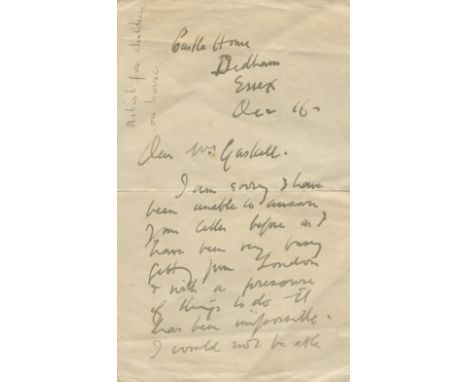 Castle House
Dedham
Essex
Dec 16
Dear Mrs Gaskell.
I am sorry I have
been unable to answer
your letter before as I
have been very busy
getting from London
& with a pressure
of things to do it
has been impossible.
I would not be able
Artist for children
on horse.